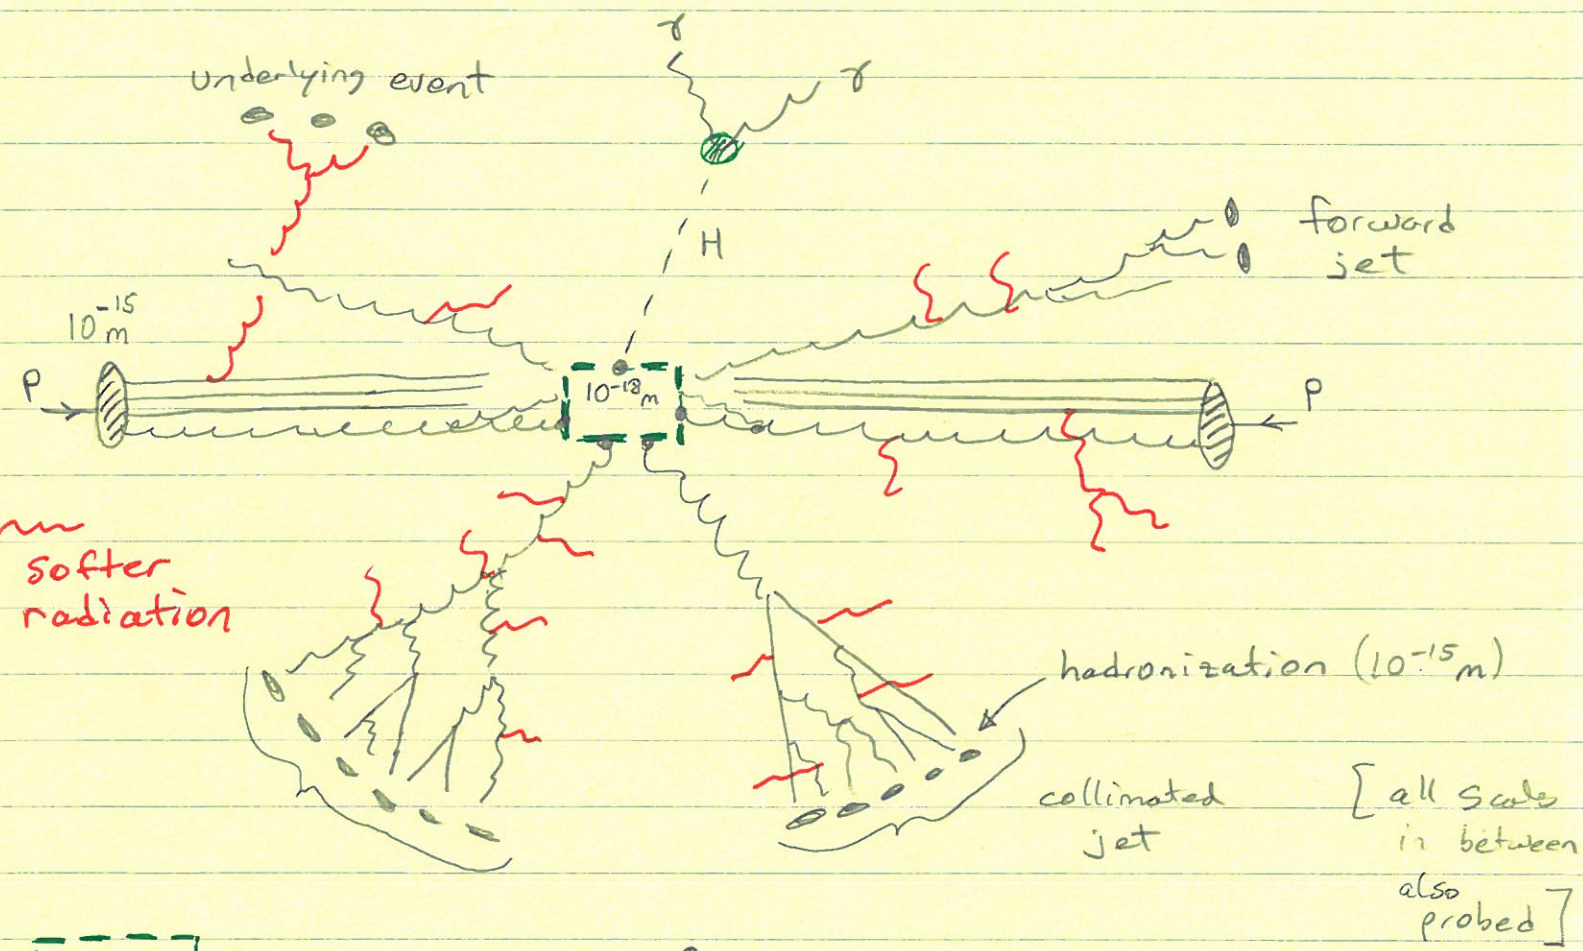 γ
γ
underlying event
H
forward
jet
10⁻¹⁵
m
P
10⁻¹⁸ m
P
softer
radiation
hadronization (10⁻¹⁵ m)
collimated
jet
[ all scales
in between
also
probed ]